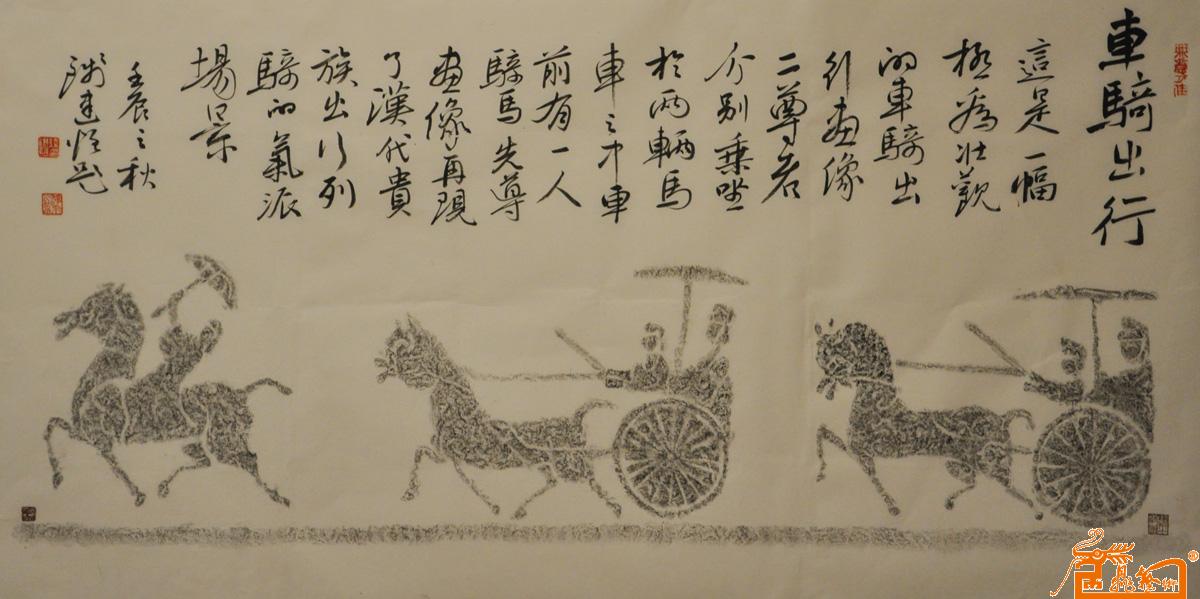 車騎出行
這是一幅
極為壯觀
的車騎出
行畫像
二尊者
分別乘坐
於兩輛馬
車之中車
前有一人
騎馬先導
畫像再現
了漢代貴
族出行列
騎的氣派
場景
壬辰之秋